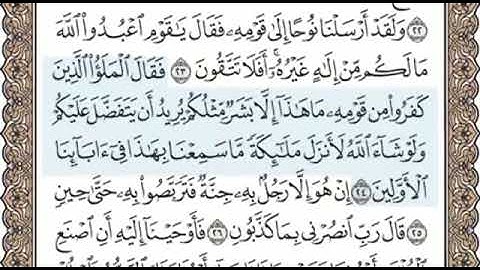 ٢٢ وَلَقَدْ أَرْسَلْنَا نُوحًا إِلَىٰ قَوْمِهِۦ فَقَالَ يَٰقَوْمِ ٱعْبُدُوا۟ ٱللَّهَ
مَا لَكُم مِّنْ إِلَٰهٍ غَيْرُهُۥٓ ۖ أَفَلَا تَتَّقُونَ ٢٣ فَقَالَ ٱلْمَلَؤُا۟ ٱلَّذِينَ
كَفَرُوا۟ مِن قَوْمِهِۦ مَا هَٰذَآ إِلَّا بَشَرٌ مِّثْلُكُمْ يُرِيدُ أَن يَتَفَضَّلَ عَلَيْكُمْ
وَلَوْ شَآءَ ٱللَّهُ لَأَنزَلَ مَلَٰٓئِكَةً مَّا سَمِعْنَا بِهَٰذَا فِىٓ ءَابَآئِنَا
ٱلْأَوَّلِينَ ٢٤ إِنْ هُوَ إِلَّا رَجُلٌۢ بِهِۦ جِنَّةٌ فَتَرَبَّصُوا۟ بِهِۦ حَتَّىٰ حِينٍ
٢٥ قَالَ رَبِّ ٱنصُرْنِى بِمَا كَذَّبُونِ ٢٦ فَأَوْحَيْنَآ إِلَيْهِ أَنِ ٱصْنَعِ